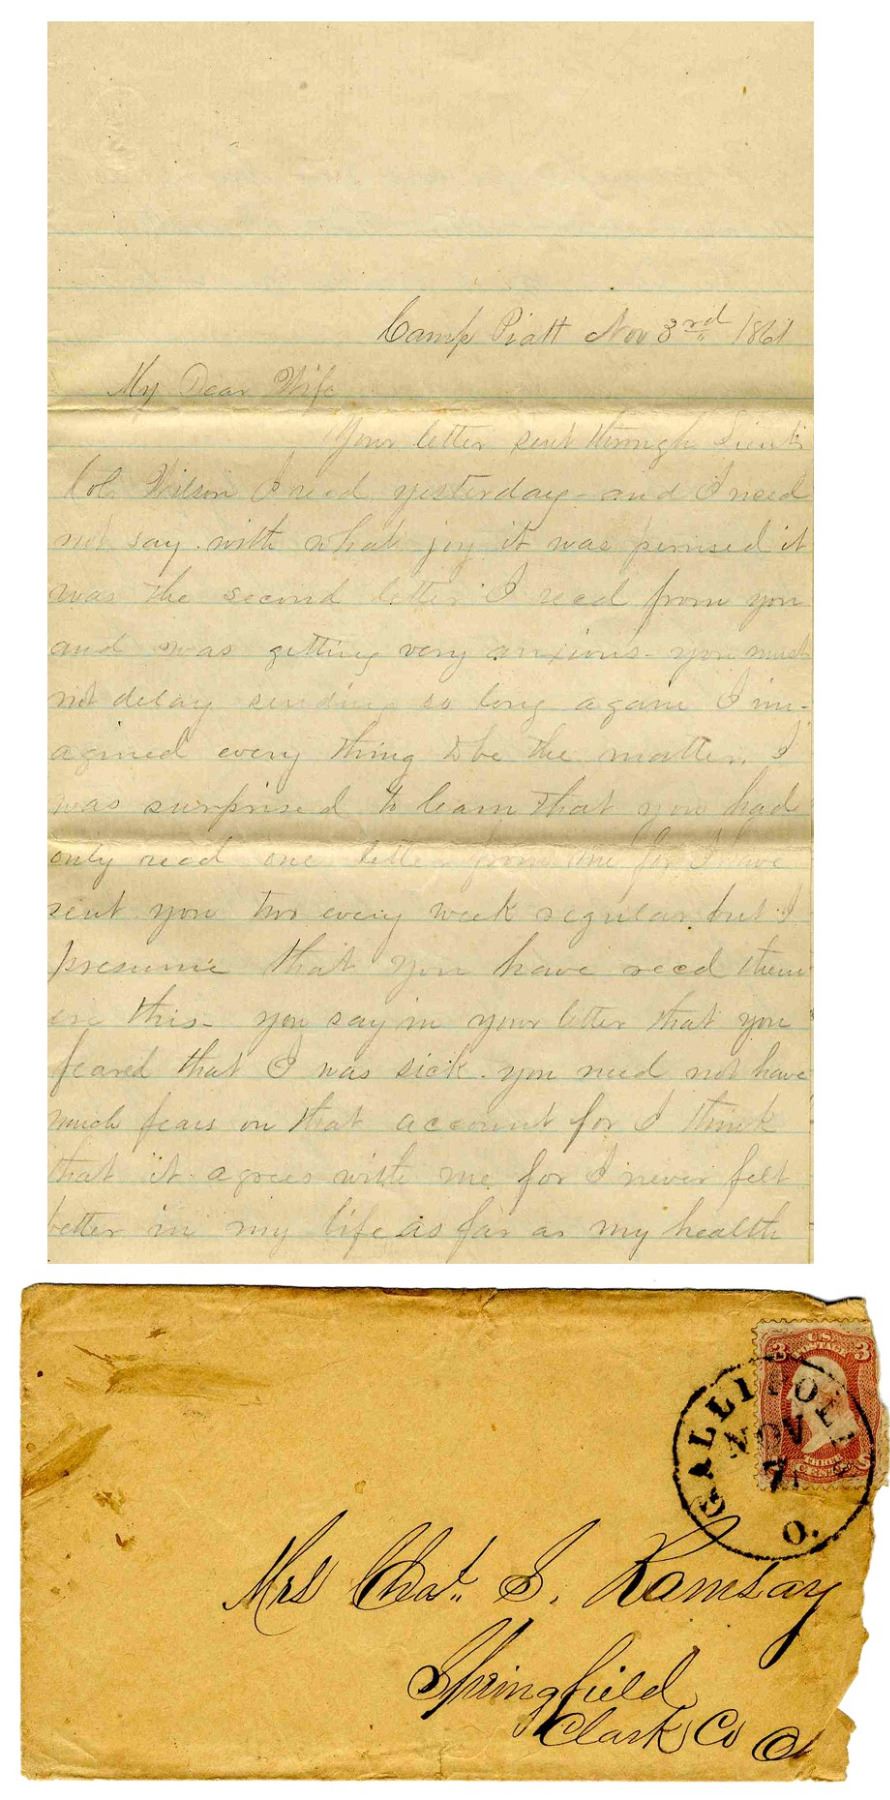 Camp Piatt Nov 3rd 1861
My Dear Wife
Your letter sent through Lieut
Col. Wilson I recd yesterday - and I need
not say with what joy it was perused it
was the second letter I recd from you
and was getting very anxious - you must
not delay sending so long again I im-
agined every thing to be the matter. I
was surprised to learn that you had
only recd one letter from me for I have
sent you two every week regular but I
presume that you have recd them
ere this - you say in your letter that you
feared that I was sick. you need not have
much fears on that account for I think
that it agrees with me for I never felt
better in my life as far as my health
U.S. POSTAGE
3 3
THREE CENTS
GALLIPOLI
NOV
7
O.
Mrs Chas. S. Ramsay
Springfield
Clark Co